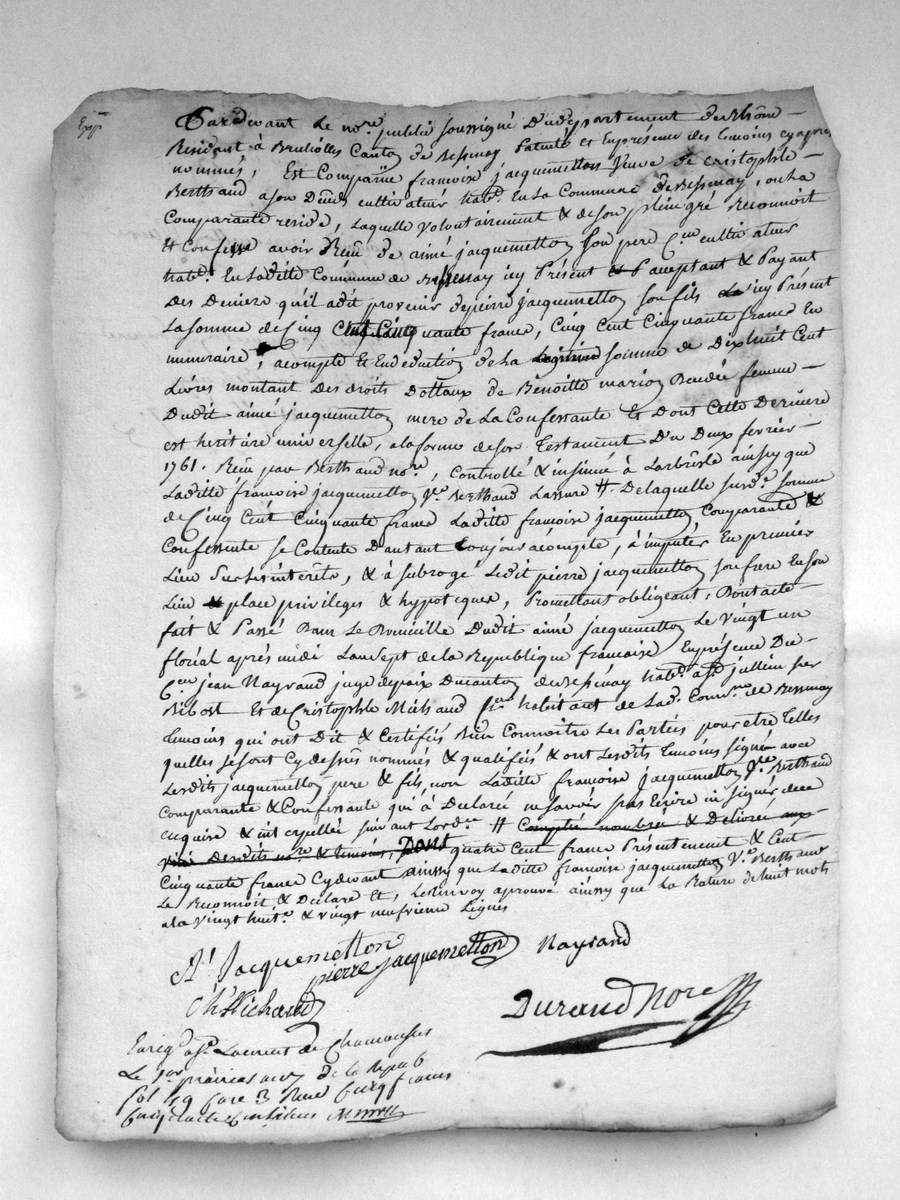 Exp
Pardevant Le no.re public soussigné Dudepartement du Rhône
Residant à Brullolles Canton de Bessenay Patenté et Enpresence des temoins cyaprès
nommés, Est Comparüe françoise jacquemetton veuve de Cristophle
Berthaud a son Deücs cultivateur hab.t En La Commune de Bessenay, ou La
Comparante reside, Laquelle volontairement & de son plein gré Reconnoit
& Confesse avoir Reçu de aimé jacquemetton Son pere C.en cultivateur
hab.t En Ladite Commune de Bessenay icy Présent & acceptant & Payant
Des Deniers qu'il a dit provenir de pierre jacquemetton son fils icy Présent
La somme de Cinq Cent Cinquante francs, Cinq Cent Cinquante francs En
numeraire, acompte & En deduction de La Legitime somme de Dixhuit Cent
Livres montant Des droits Dottaux de Benoitte marion Baudée femme
Dudit aimé jacquemetton mere de La Confessante & Dont Cette Derniere
est heritiere universelle, a la forme de son Testament Du Deux fevrier
1761. Reçu par Berthaud no.re, Controllé & insinué à Larbresle ainsy que
Ladite françoise jacquemetton v.e Berthaud Lassure # De laquelle susd.e somme
de Cinq Cent Cinquante francs Ladite françoise jacquemetton Comparante &
Confessente se Contente D'autant toujours acompte, à imputer En premier
Lieu Sur Les interets, & à subrogé Ledit pierre jacquemetton son frere En son
Lieu & place privileges & hypoteques, Promettant obligeant, Dont acte
fait & Passé Dans Le Domicille Dudit aimé jacquemetton Le vingt un
floréal après midi Lan Sept de la Republique francoise Enprésence Du
C.en jean Nayrand juge depaix Du canton de Bessenay hab.t a S.t jullien sur
Bibost Et de Cristophle Michaud habitant de Lad. Comm.ne de Bessenay
temoins qui ont Dit & Certifiés Bien Connoitre Les Parties pour etre telles
quelles se sont Cy dessus nommés & qualifiés & ont Lesdits temoins signé avec
Lesdits jacquemetton pere & fils, non Ladite françoise jacquemetton v.e Berthaud
Comparante & Confessante qui à Declaré ne savoir pas Ecrire ni signer de ce
enquise & interpellée suivant Lord.ce # Comptée nombrée & Delivrée aux
vüe desdits no.re & temoins, Dont quatre Cent francs Présentement & Cent
Cinquante francs Cydevant ainsy que Ladite francoise jacquemetton V.e Berthaud
Le Reconnoit & Declare Et, Le Renvoy aprouvé ainsy que La Rature de huit mots
a la vingt huit.e & vingt neufvieme Lignes
A.é Jacquemetton
pierre jacquemetton Nayrand
Ch.le Michaud
Durand Nore
Enreg. a S.t Laurent de Chamousset
Le 1.er prairial an 7 de la repub
fol 19 case 3 Reçu cinq francs